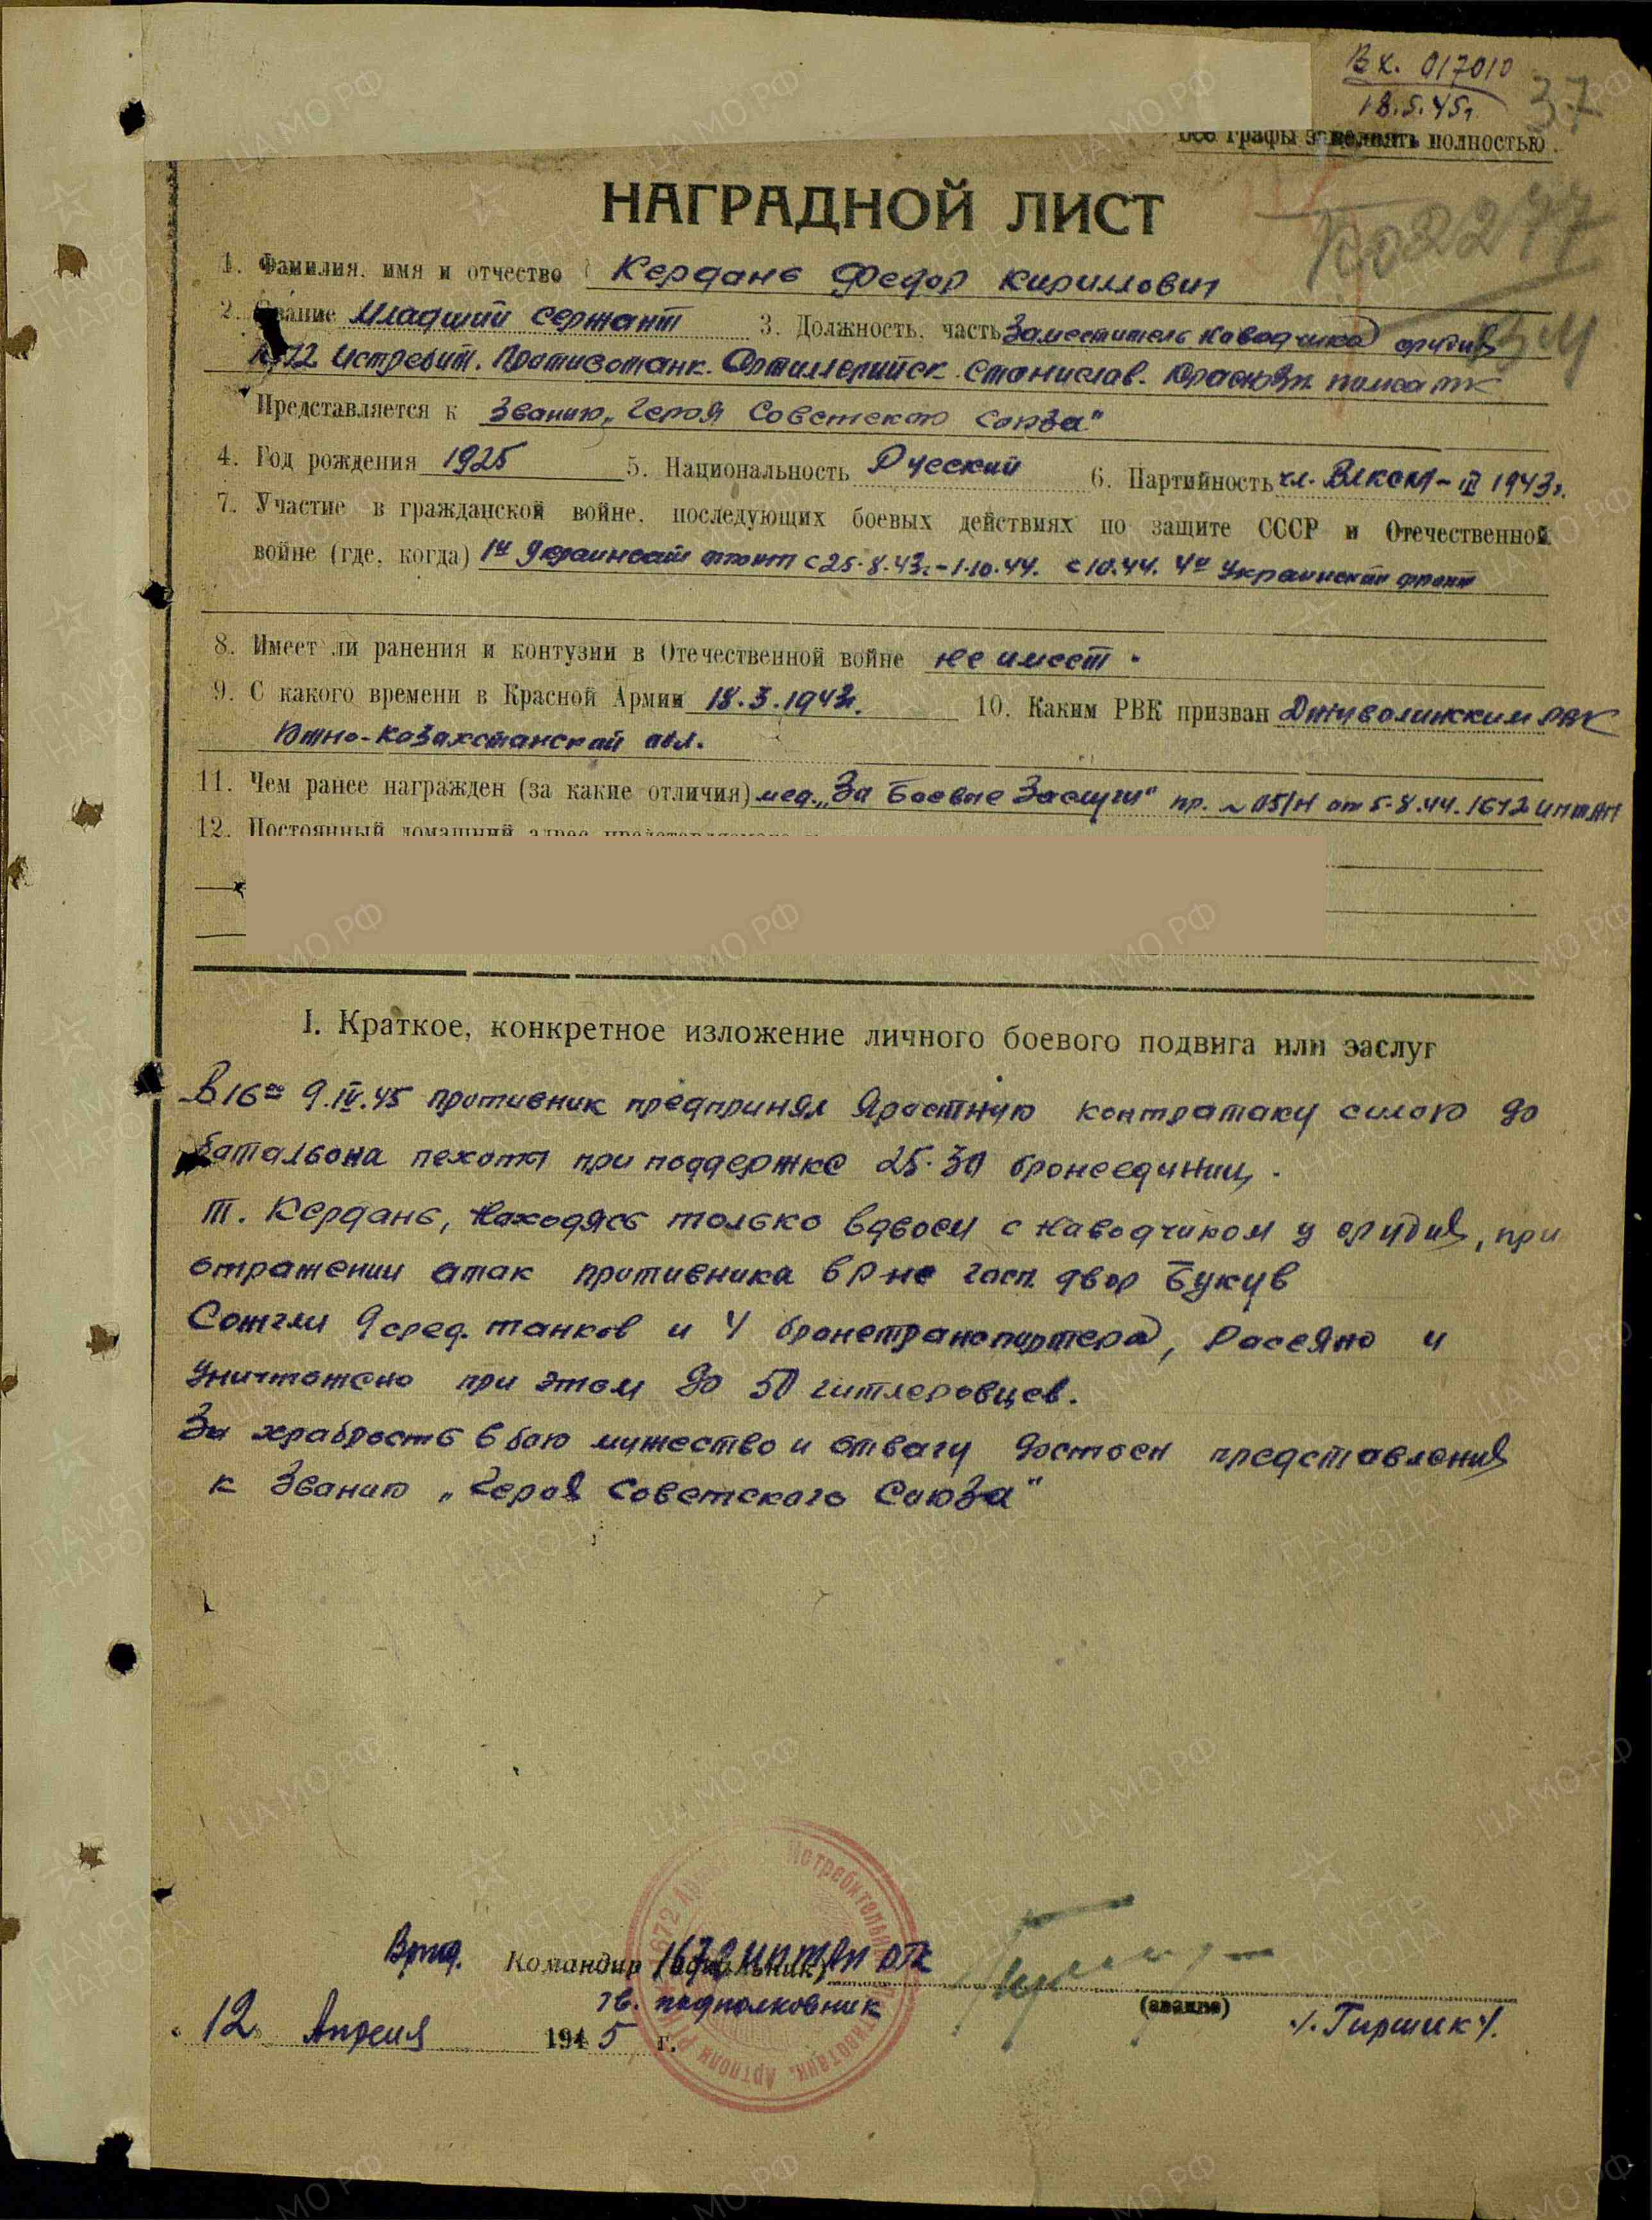 Вх. 017010
18.5.45г.
37
Все графы заполнять полностью
НАГРАДНОЙ ЛИСТ
1. Фамилия, имя и отчество Кердань Федор Кириллович
2. Звание Младший сержант 3. Должность, часть Заместитель наводчика орудия
1672 Истребит. Противотанк. Артиллерийск. Станислав. Краснозн. полка РГК
Представляется к званию „Героя Советского Союза"
4. Год рождения 1925 5. Национальность Русский 6. Партийность чл. ВЛКСМ – 1943г.
7. Участие в гражданской войне, последующих боевых действиях по защите СССР и Отечественной
войне (где, когда) 1й Украинский фронт с 25.8.43г.-1.10.44. с 10.44. 4й Украинский фронт
8. Имеет ли ранения и контузии в Отечественной войне не имеет.
9. С какого времени в Красной Армии 18.3.1943г. 10. Каким РВК призван Джувалинским РВК
Южно-Казахстанской обл.
11. Чем ранее награжден (за какие отличия) мед. „За Боевые Заслуги" пр. № 05/Н от 5.8.44. 1672 иптап
12. Постоянный домашний адрес представляемого
I. Краткое, конкретное изложение личного боевого подвига или заслуг
В 16°° 9.IV.45 противник предпринял яростную контратаку силою до
батальона пехоты при поддержке 25-30 бронеединиц.
Т. Кердань, находясь только вдвоем с наводчиком у орудия, при
отражении атак противника в р-не госп. двор Букув
Сожгли 9 сред. танков и 4 бронетранспортера, рассеяно и
уничтожено при этом до 50 гитлеровцев.
За храбрость в бою мужество и отвагу достоен представления
к званию „Героя Советского Союза"
Врид. Командир (начальник) 1672 иптап РГК
гв. подполковник (звание) /Гиршик/.
„12" Апреля 1945 г.